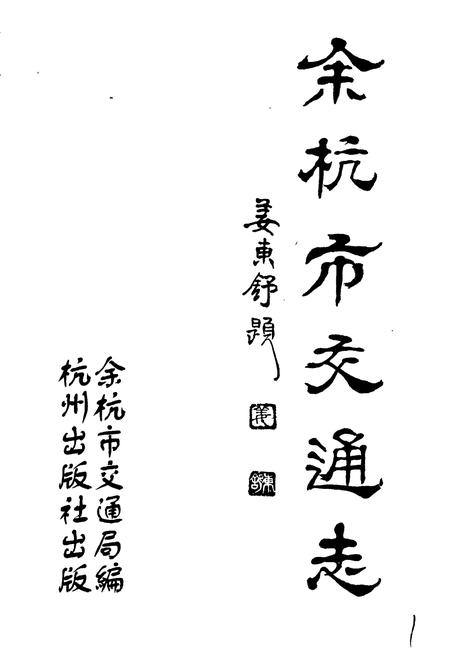 余杭市交通志
姜東舒題
余杭市交通局編
杭州出版社出版